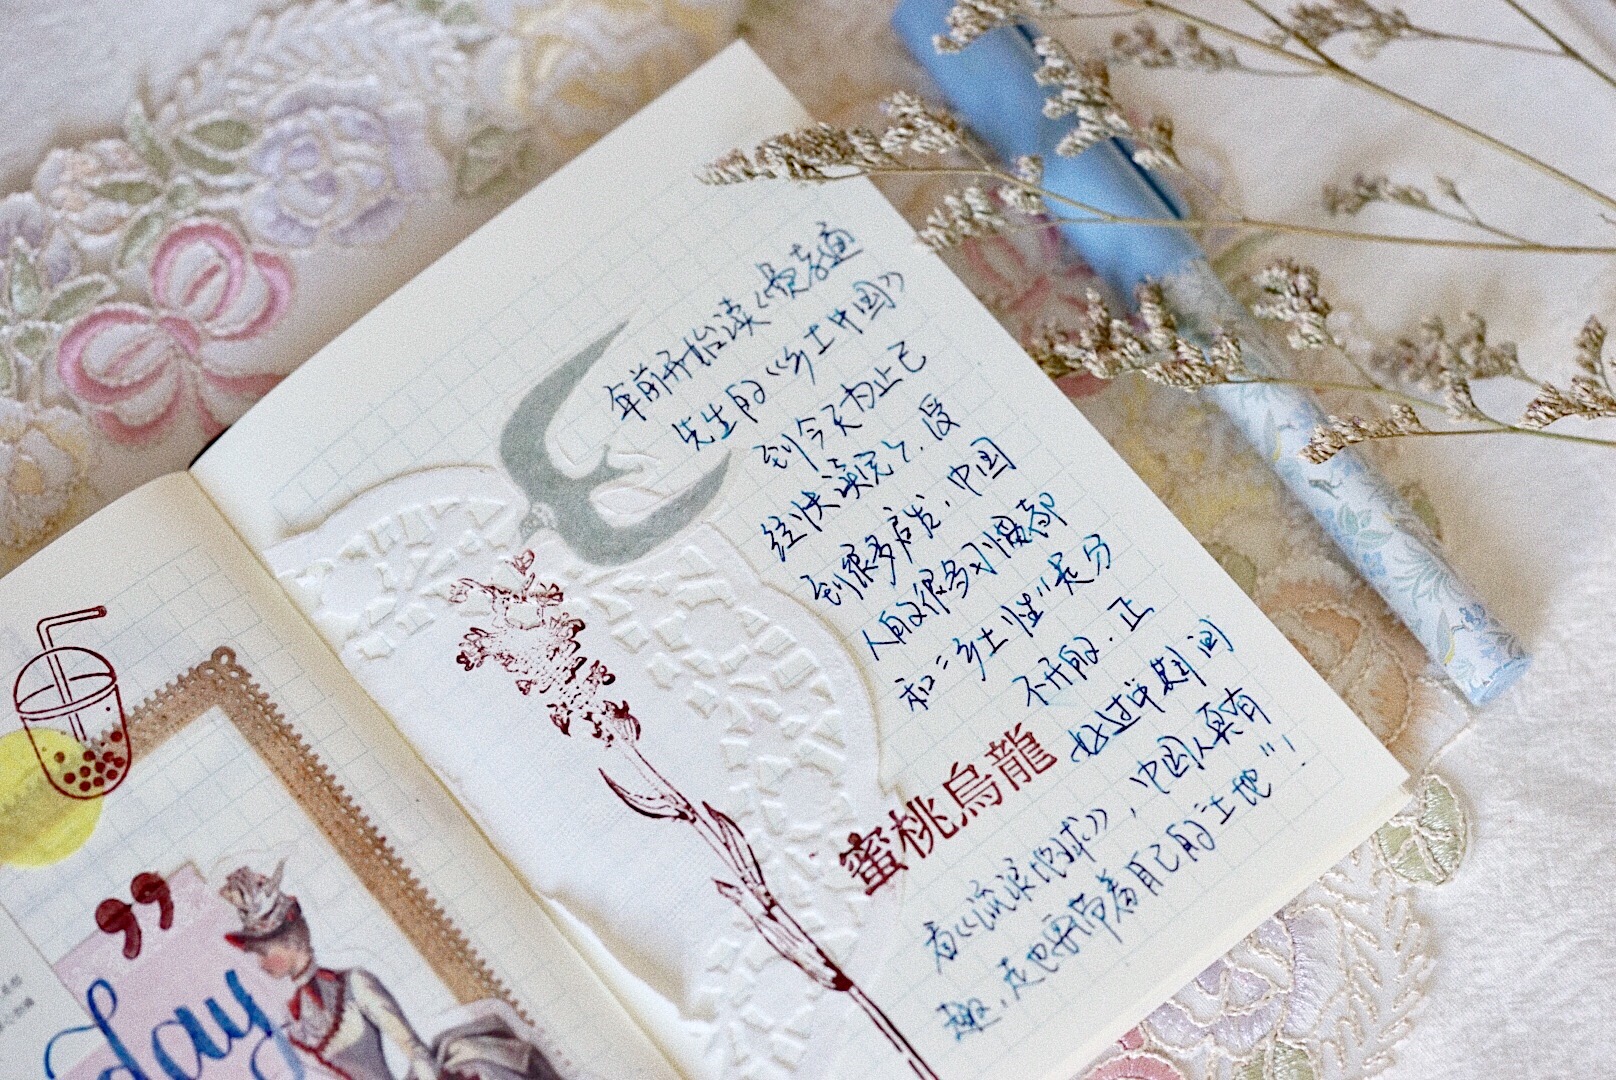 年前开始读《费孝通
先生的《乡土中国》
到今天为止已
经快读完了.受
到很多启发,中国
人的很多习惯都
和“乡土性”是分
不开的.正
好过年期间
看《流浪地球》,中国人真有
趣,走也要带着自己的“土地”!
蜜桃烏龍
”
day